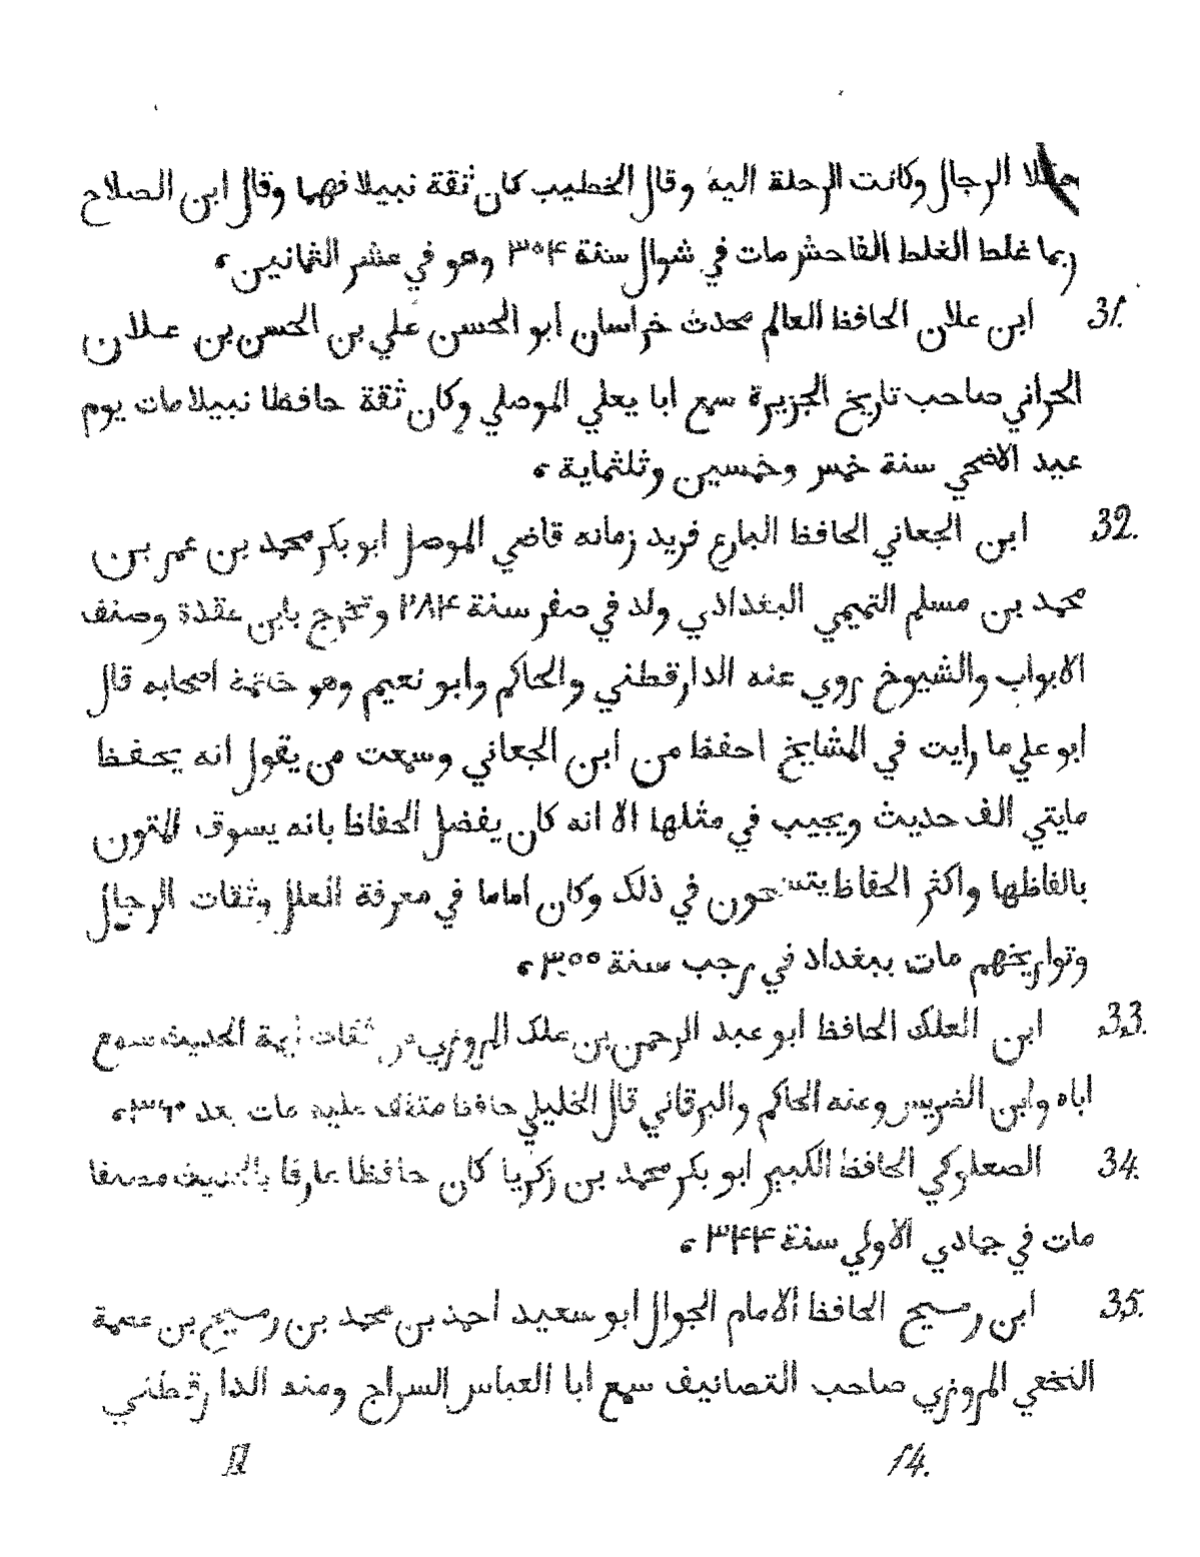 الرجال وكانت الرحلة اليه وقال الخطيب كان ثقة نبيلا فهما وقال ابن الصلاح
ربما غلط الغلط الفاحش مات في شوال سنة ٣٥٤ وهو في عشر الثمانين ،
31. ابن علان الحافظ العالم محدث خراسان أبو الحسن علي بن الحسن بن علان
الحراني صاحب تاريخ الجزيرة سمع ابا يعلي الموصلي وكان ثقة حافظا نبيلا مات يوم
عيد الاضحي سنة خمس وخمسين وثلثماية ،
32. ابن الجعاني الحافظ البارع فريد زمانه قاضي الموصل ابو بكر محمد بن عمر بن
محمد بن مسلم التميمي البغدادي ولد في صفر سنة ٢٨٤ وتخرج بابن عقدة وصنف
الابواب والشيوخ روي عنه الدارقطني والحاكم وابو نعيم وهو خاتمة اصحابه قال
ابو علي ما رايت في المشايخ احفظ من ابن الجعاني وسمعت من يقول انه يحفظ
مايتي الف حديث ويجيب في مثلها الا انه كان يفضل الحفاظ بانه يسوق المتون
بالفاظها واكثر الحفاظ في ذلك وكان اماما في معرفة العلل وثقات الرجال
وتواريخهم مات ببغداد في رجب سنة ٣٥٥ ،
33. ابن العلك الحافظ ابو عبد الرحمن بن علك المروزي من ثقات ايمة الحديث سمع
اباه وابن الضريس وعنه الحاكم والبرقاني قال الخليلي حافظ متفق عليه مات بعد ٣٦٠ ،
34. الصعلوكي الحافظ الكبير ابو بكر محمد بن زكريا كان حافظا عارفا بالحديث مصنفا
مات في جمادي الاولي سنة ٣٤٤ ،
35. ابن رميح الحافظ الامام الجوال ابو سعيد احمد بن محمد بن رميح بن عصمة
النخعي المروزي صاحب التصانيف سمع ابا العباس السراج ومنه الدارقطني
14.